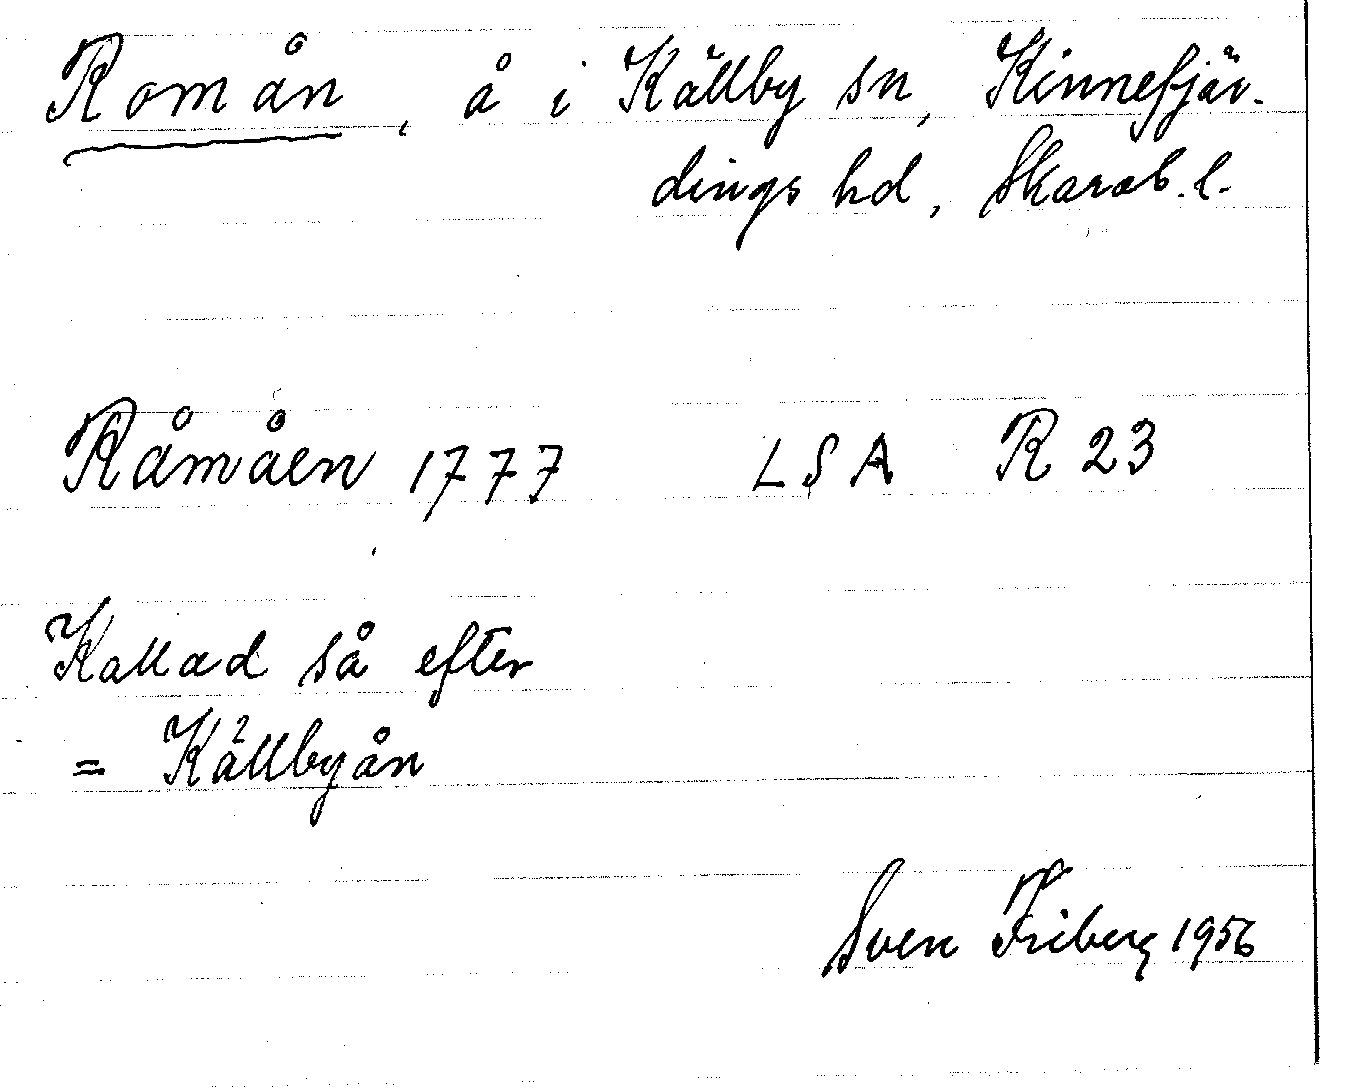 Romån, å i Källby sn, Kinnefjär-
dings hd, Skarab. l.
Råmåen 1777 LSA R 23
Kallad så efter
= Källbyån
Sven Friberg 1956